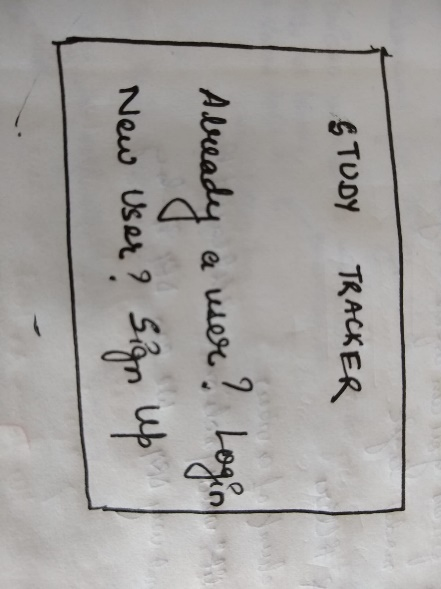 STUDY TRACKER
Already a user? Login
New User? Sign Up